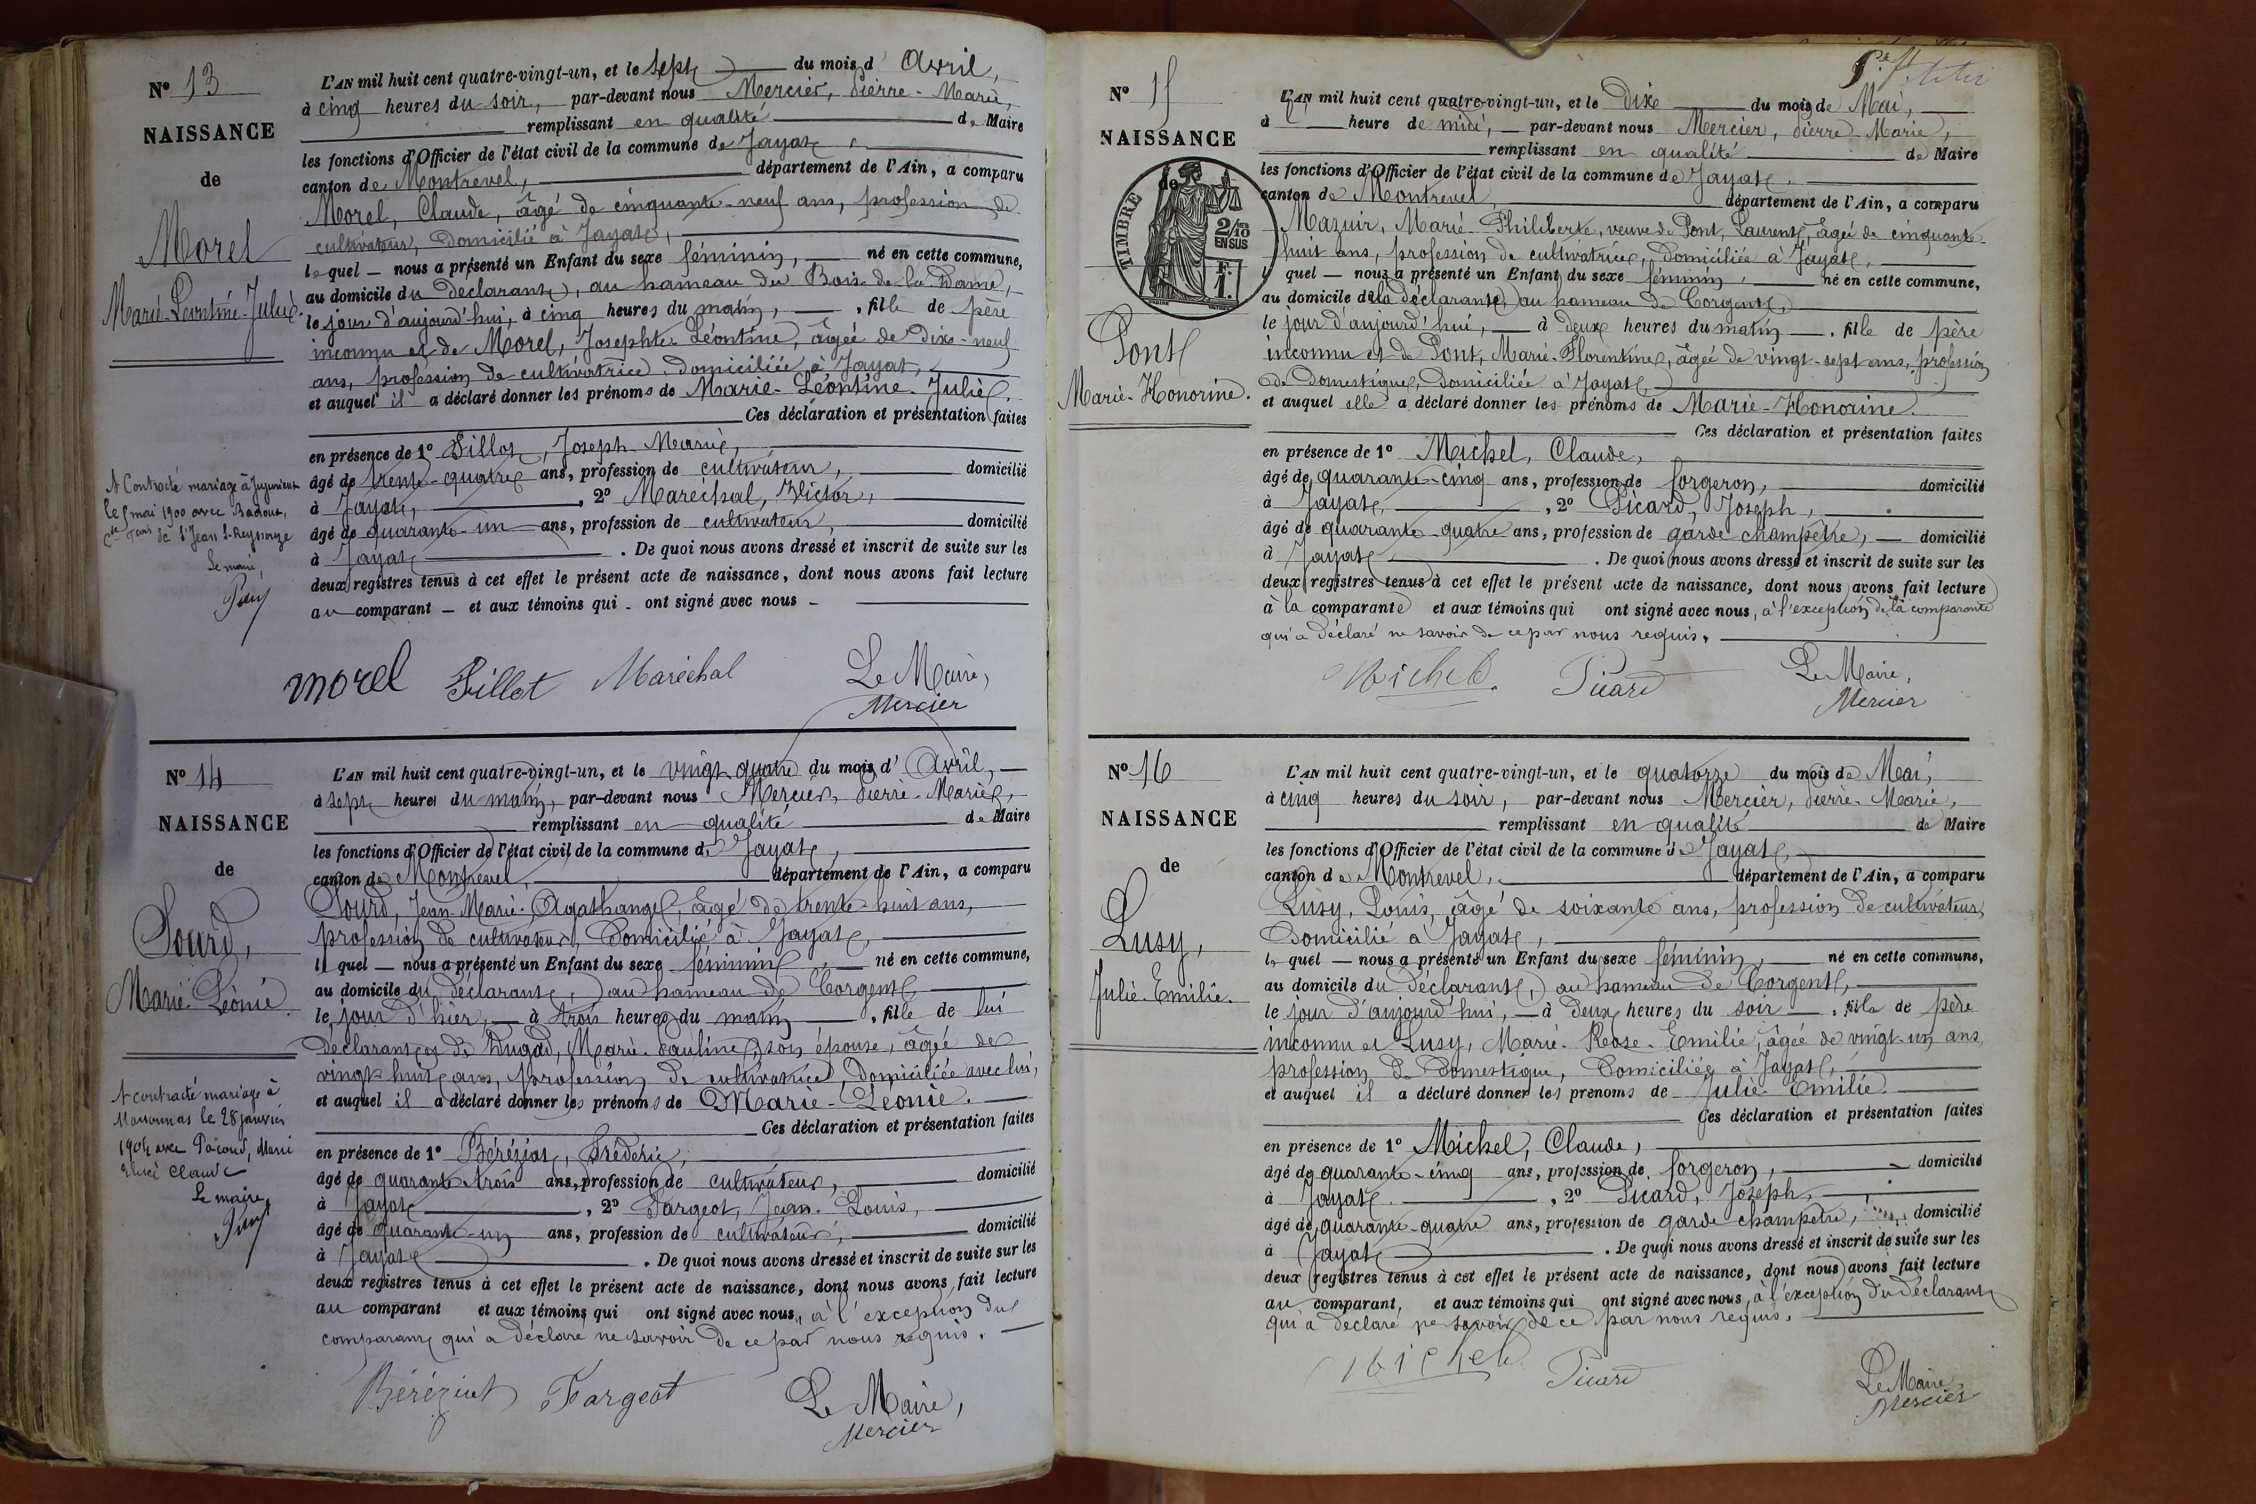 N° 13
NAISSANCE
de
Morel
Marie-Léontine-Julie.
L'AN mil huit cent quatre-vingt-un, et le sept du mois d' Avril,
à cinq heures du soir, par-devant nous Mercier, Pierre-Marie,
remplissant en qualité de Maire
les fonctions d'Officier de l'état civil de la commune de Jayat,
canton de Montrevel, département de l'Ain, a comparu
Morel, Claude, âgé de cinquante-neuf ans, profession de
cultivateur, domicilié à Jayat,
lequel nous a présenté un Enfant du sexe féminin, né en cette commune,
au domicile du déclarant, au hameau du Bois de la Dame,
le jour d'aujourd'hui, à cinq heures du matin, fille de père
inconnu et de Morel, Josephte Léontine, âgée de dix-neuf
ans, profession de cultivatrice, domiciliée à Jayat,
et auquel il a déclaré donner les prénoms de Marie-Léontine-Julie.
Ces déclaration et présentation faites
en présence de 1° Fillot, Joseph-Marie,
âgé de trente-quatre ans, profession de cultivateur, domicilié
à Jayat, 2° Maréchal, Victor,
âgé de quarante-un ans, profession de cultivateur, domicilié
à Jayat. De quoi nous avons dressé et inscrit de suite sur les
deux registres tenus à cet effet le présent acte de naissance, dont nous avons fait lecture
au comparant et aux témoins qui ont signé avec nous
A Contracté mariage à Jujurieux
le 5 mai 1900 avec
de St Jean S. Reyssouze
Le maire,
morel Fillot Maréchal Le Maire,
Mercier
N° 14
NAISSANCE
de
Sourd,
Marie-Léonie.
L'AN mil huit cent quatre-vingt-un, et le vingt-quatre du mois d' Avril,
à sept heures du matin, par-devant nous Mercier, Pierre-Marie,
remplissant en qualité de Maire
les fonctions d'Officier de l'état civil de la commune de Jayat,
canton de Montrevel, département de l'Ain, a comparu
Sourd, Jean-Marie-Agathange, âgé de trente-huit ans,
profession de cultivateur, domicilié à Jayat,
lequel nous a présenté un Enfant du sexe féminin, né en cette commune,
au domicile du déclarant, au hameau de Corgent
le jour d'hier, à trois heures du matin, fille de lui
déclarant et de Dugad, Marie-Pauline, son épouse, âgée de
vingt-huit ans, profession de cultivatrice, domiciliée avec lui,
et auquel il a déclaré donner les prénoms de Marie-Léonie.
Ces déclaration et présentation faites
en présence de 1° Béréziat, Frédéric,
âgé de quarante-trois ans, profession de cultivateur, domicilié
à Jayat, 2° Fargeot, Jean-Louis,
âgé de quarante-un ans, profession de cultivateur, domicilié
à Jayat. De quoi nous avons dressé et inscrit de suite sur les
deux registres tenus à cet effet le présent acte de naissance, dont nous avons fait lecture
au comparant et aux témoins qui ont signé avec nous, à l'exception du
comparant qui a déclaré ne savoir de ce par nous requis.
A contracté mariage à
Marsonnas le 28 janvier
1904 avec Pacoud, Marie
Claude
Le maire,
Béréziat Fargeot Le Maire,
Mercier
N° 15
NAISSANCE
de
TIMBRE
2/10
EN SUS
F.
1.
Pont
Marie-Honorine.
L'AN mil huit cent quatre-vingt-un, et le dix du mois de Mai,
à heure de midi, par-devant nous Mercier, Pierre-Marie,
remplissant en qualité de Maire
les fonctions d'Officier de l'état civil de la commune de Jayat,
canton de Montrevel, département de l'Ain, a comparu
Mazuir, Marie-Philiberte, veuve de Pont, Laurent, âgée de cinquante-
huit ans, profession de cultivatrice, domiciliée à Jayat,
quel nous a présenté un Enfant du sexe féminin, né en cette commune,
au domicile de la déclarante, au hameau de Corgent,
le jour d'aujourd'hui, à deux heures du matin, fille de père
inconnu et de Pont, Marie-Florentine, âgée de vingt-sept ans, profession
de domestique, domiciliée à Jayat
et auquel elle a déclaré donner les prénoms de Marie-Honorine.
Ces déclaration et présentation faites
en présence de 1° Michel, Claude,
âgé de quarante-cinq ans, profession de forgeron, domicilié
à Jayat, 2° Picard, Joseph,
âgé de quarante-quatre ans, profession de garde champêtre, domicilié
à Jayat. De quoi nous avons dressé et inscrit de suite sur les
deux registres tenus à cet effet le présent acte de naissance, dont nous avons fait lecture
à la comparante et aux témoins qui ont signé avec nous, à l'exception de la comparante
qui a déclaré ne savoir de ce par nous requis.
Michel. Picard Le Maire,
Mercier
N° 16
NAISSANCE
de
Lusy,
Julie-Emilie.
L'AN mil huit cent quatre-vingt-un, et le quatorze du mois de Mai,
à cinq heures du soir, par-devant nous Mercier, Pierre-Marie,
remplissant en qualité de Maire
les fonctions d'Officier de l'état civil de la commune de Jayat,
canton de Montrevel, département de l'Ain, a comparu
Lusy, Louis, âgé de soixante ans, profession de cultivateur,
domicilié à Jayat,
lequel nous a présenté un Enfant du sexe féminin, né en cette commune,
au domicile du déclarant, au hameau de Corgent,
le jour d'aujourd'hui, à deux heures du soir, fille de père
inconnu et Lusy, Marie-Rose-Emilie, âgée de vingt-un ans,
profession de domestique, domiciliée à Jayat,
et auquel il a déclaré donner les prénoms de Julie-Emilie.
Ces déclaration et présentation faites
en présence de 1° Michel, Claude,
âgé de quarante-cinq ans, profession de forgeron, domicilié
à Jayat, 2° Picard, Joseph,
âgé de quarante-quatre ans, profession de garde champêtre, domicilié
à Jayat. De quoi nous avons dressé et inscrit de suite sur les
deux registres tenus à cet effet le présent acte de naissance, dont nous avons fait lecture
au comparant, et aux témoins qui ont signé avec nous, à l'exception du déclarant
qui a déclaré ne savoir de ce par nous requis.
Michel Picard Le Maire
Mercier